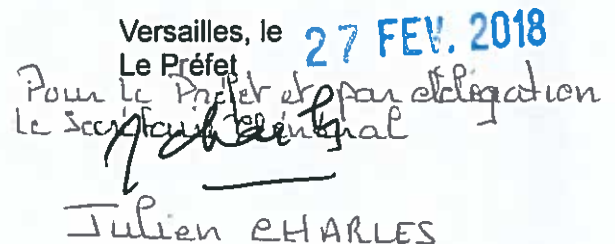 Versailles, le 27 FEV. 2018
Le Préfet
Pour le Préfet et par délégation
Le Secrétaire Général
Julien CHARLES